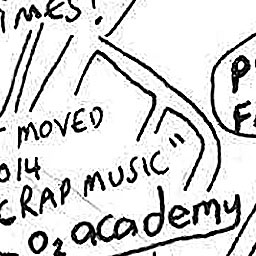 IMES!
MOVED
014
CRAP MUSIC"
O₂ academy
P
F